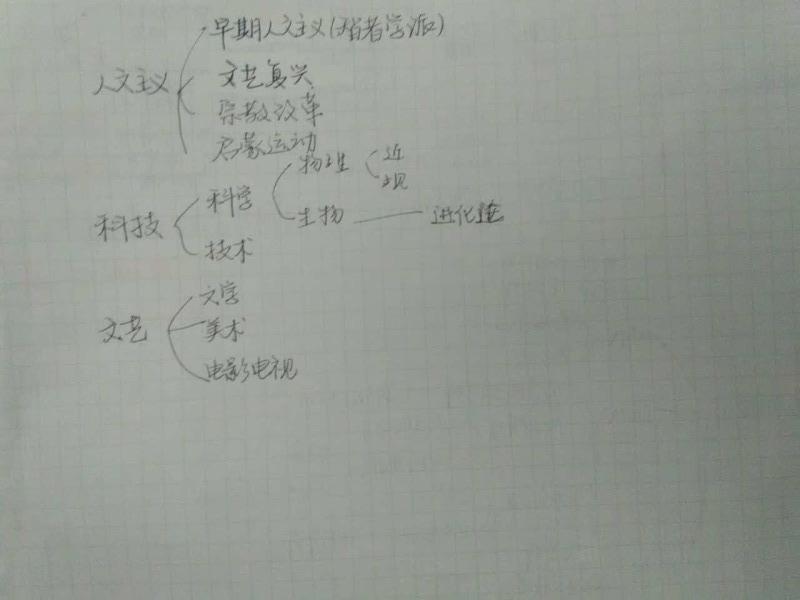 早期人文主义(智者学派)
人文主义
文艺复兴
宗教改革
启蒙运动
物理
近
现
科学
科技
生物
进化论
技术
文学
文艺
美术
电影电视